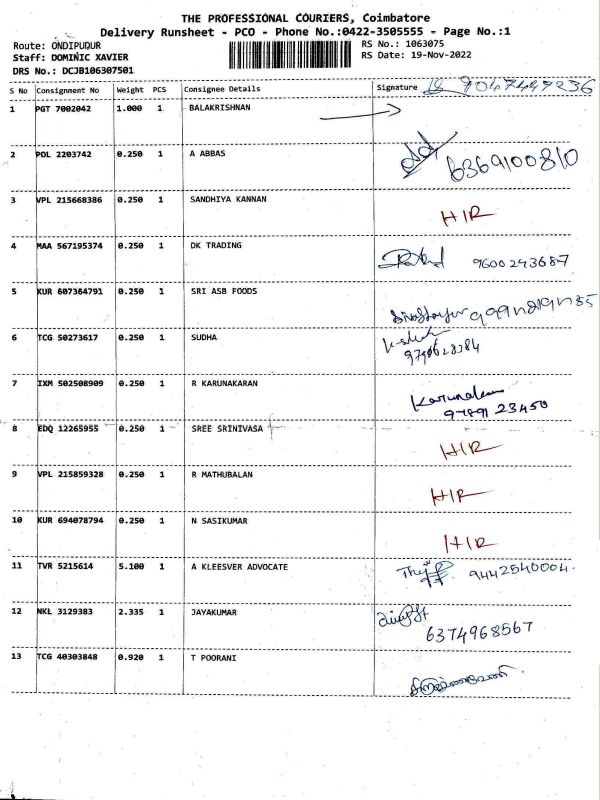 THE PROFESSIONAL COURIERS, Coimbatore
Delivery Runsheet - PCO - Phone No.:0422-3505555 - Page No.:1
Route: ONDIPUDUR
RS No.: 1063075
Staff: DOMINIC XAVIER
RS Date: 19-Nov-2022
DRS No.: DCJB106307501
S No Consignment No Weight PCS Consignee Details Signature
1 PGT 7002042 1.000 1 BALAKRISHNAN
2 POL 2203742 0.250 1 A ABBAS 6369100810
3 VPL 215668386 0.250 1 SANDHIYA KANNAN HIR
4 MAA 567195374 0.250 1 DK TRADING 9600243687
5 KUR 607364791 0.250 1 SRI ASB FOODS
6 TCG 50273617 0.250 1 SUDHA
7 IXM 502508909 0.250 1 R KARUNAKARAN Karunakaran 9789123450
8 EDQ 12265955 0.250 1 SREE SRINIVASA HIR
9 VPL 215859328 0.250 1 R MATHUBALAN HIR
10 KUR 694078794 0.250 1 N SASIKUMAR HIR
11 TVR 5215614 5.100 1 A KLEESVER ADVOCATE 9442540004.
12 NKL 3129383 2.335 1 JAYAKUMAR 6374968567
13 TCG 40303848 0.920 1 T POORANI